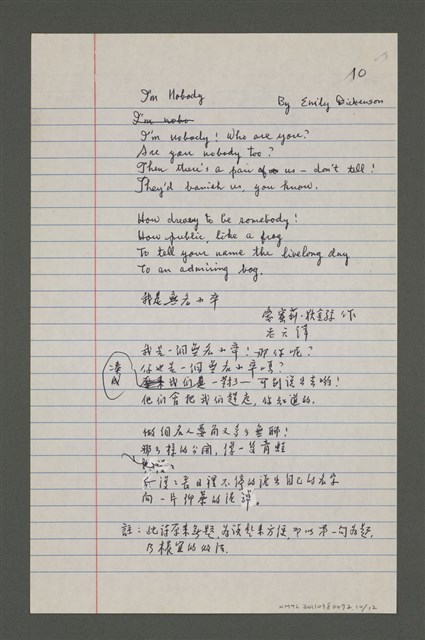 10
I'm Nobody
By Emily Dickenson
I'm nobo
I'm nobody! Who are you?
Are you nobody too?
Then there's a pair of us – don't tell!
They'd banish us, you know.
How dreary to be somebody!
How public, like a frog
To tell your name the livelong day
To an admiring bog.
我是無名小卒
作
我是一個無名小卒!那你呢?
你也是一個無名小卒嗎?
湊成
我們是一對了—可別說出去喲!
他們會把我們趕走,你知道的.
做個名人要角又多麼無聊!
那麼樣的公開,像一隻青蛙
整日裡不停的說出自己的名字
向一片仰慕的泥潭。
註:此詩原來無題,為讀起來方便,即以第一句為題,
乃權宜的做法.
NMTL 20110980092 10/12